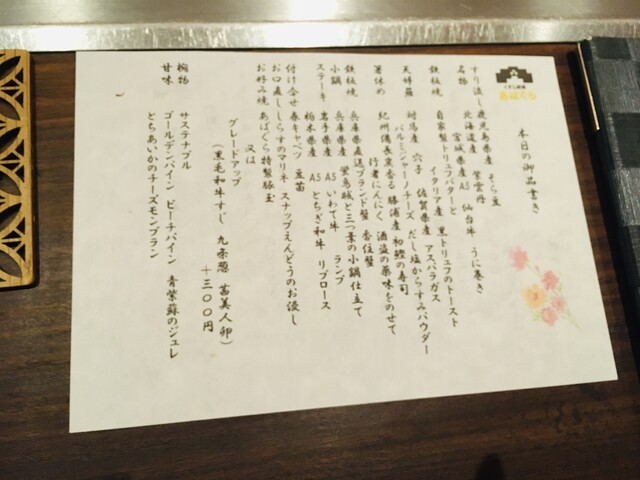 くずし割烹
あばぐら
本日の御品書き
すり流し 鹿児島県産 そら豆
名物 北海道産 紫雲丹
宮城県産 A5 仙台牛 うに巻き
鉄板焼 自家製トリュフバターと
イタリア産 黒トリュフのトースト
天婦羅 対馬産 穴子 佐賀県産 アスパラガス
パルミジャーノチーズ だし塩からすみパウダー
箸休め 紀州備長炭香る 勝浦産 初鰹の寿司
行者にんにく 酒盗の薬味をのせて
鉄板焼 兵庫県直送ブランド蟹 香住蟹
小鍋 兵庫県産 蛍烏賊と三つ葉の小鍋仕立て
ステーキ 岩手県産 A5 いわて牛 ランプ
栃木県産 A5 とちぎ和牛 リブロース
付け合せ 春キャベツ 豆苗
お口直し しらすのマリネ スナップえんどうのお浸し
お好み焼 あばぐら特製豚玉
又は
グレードアップ +三〇〇円
(黒毛和牛すじ 九条葱 苗美人卵)
椀物
甘味 サステナブル
ゴールデンパイン ピーチパイン 青紫蘇のジュレ
とちあいかのチーズモンブラン